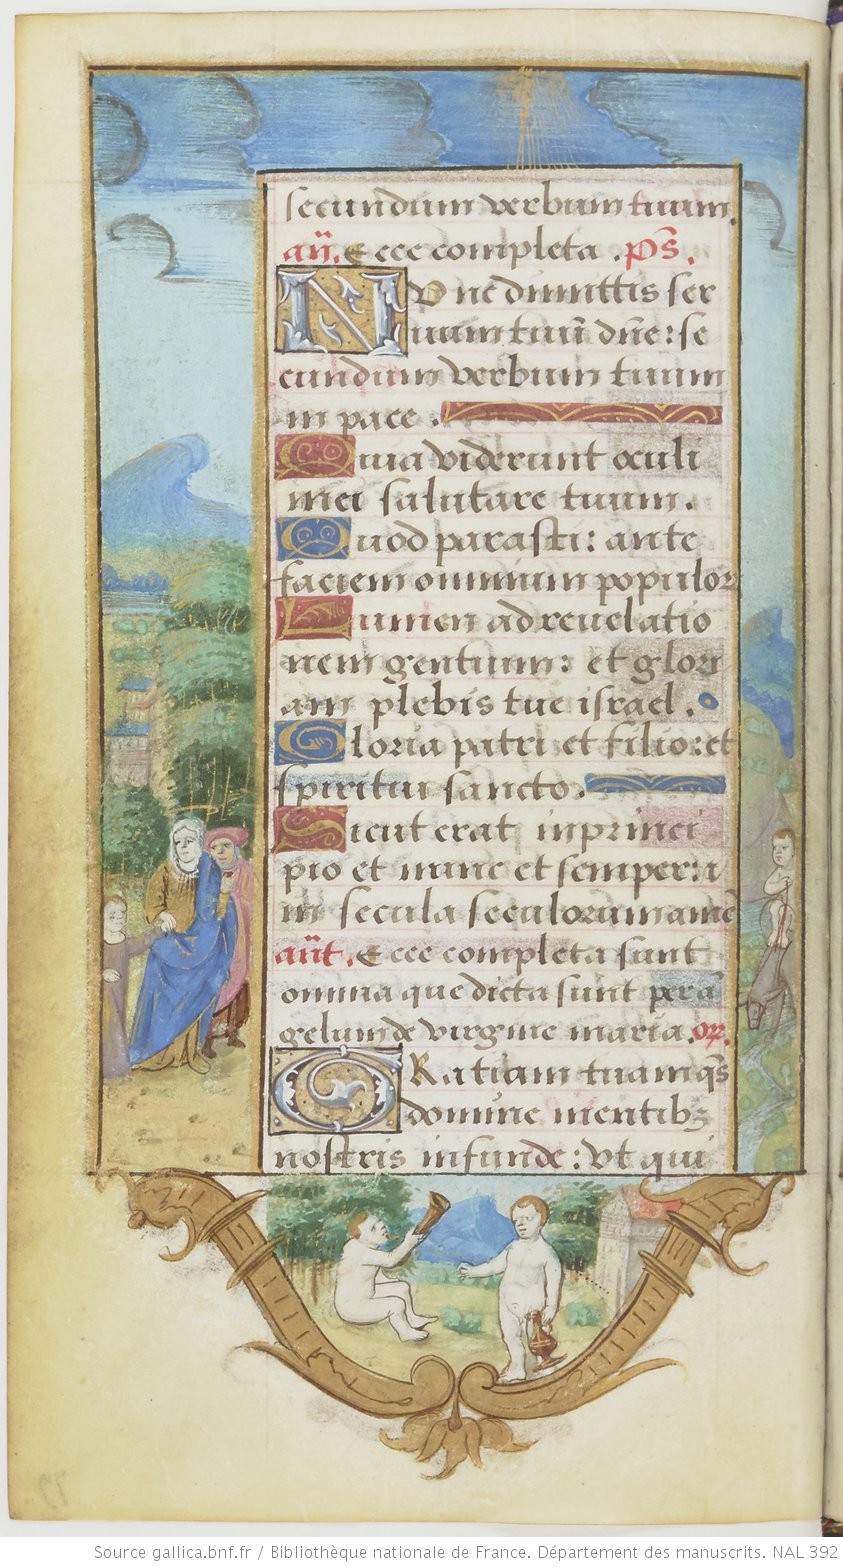 secundum verbum tuum.
añ. Ecce completa. p̃s.
NUnc dimittis ser
uum tuũ dñe: se
cundum verbum tuum
in pace.
Quia viderunt oculi
mei salutare tuum.
Quod parasti: ante
faciem omnium populor
Lumen ad reuelatio
nem gentium: et glori
am plebis tue israel.
Gloria patri et filio: et
spiritui sancto.
Sicut erat in princi
pio et nunc et semper: i
in secula seculorum amẽ
añt. Ecce completa sunt
omnia que dicta sunt per ã
gelum de virgine maria. or.
GRatiam tuam q̃s
domine mentibꝫ
nostris infunde: vt qui
Source gallica.bnf.fr / Bibliothèque nationale de France. Département des manuscrits. NAL 392